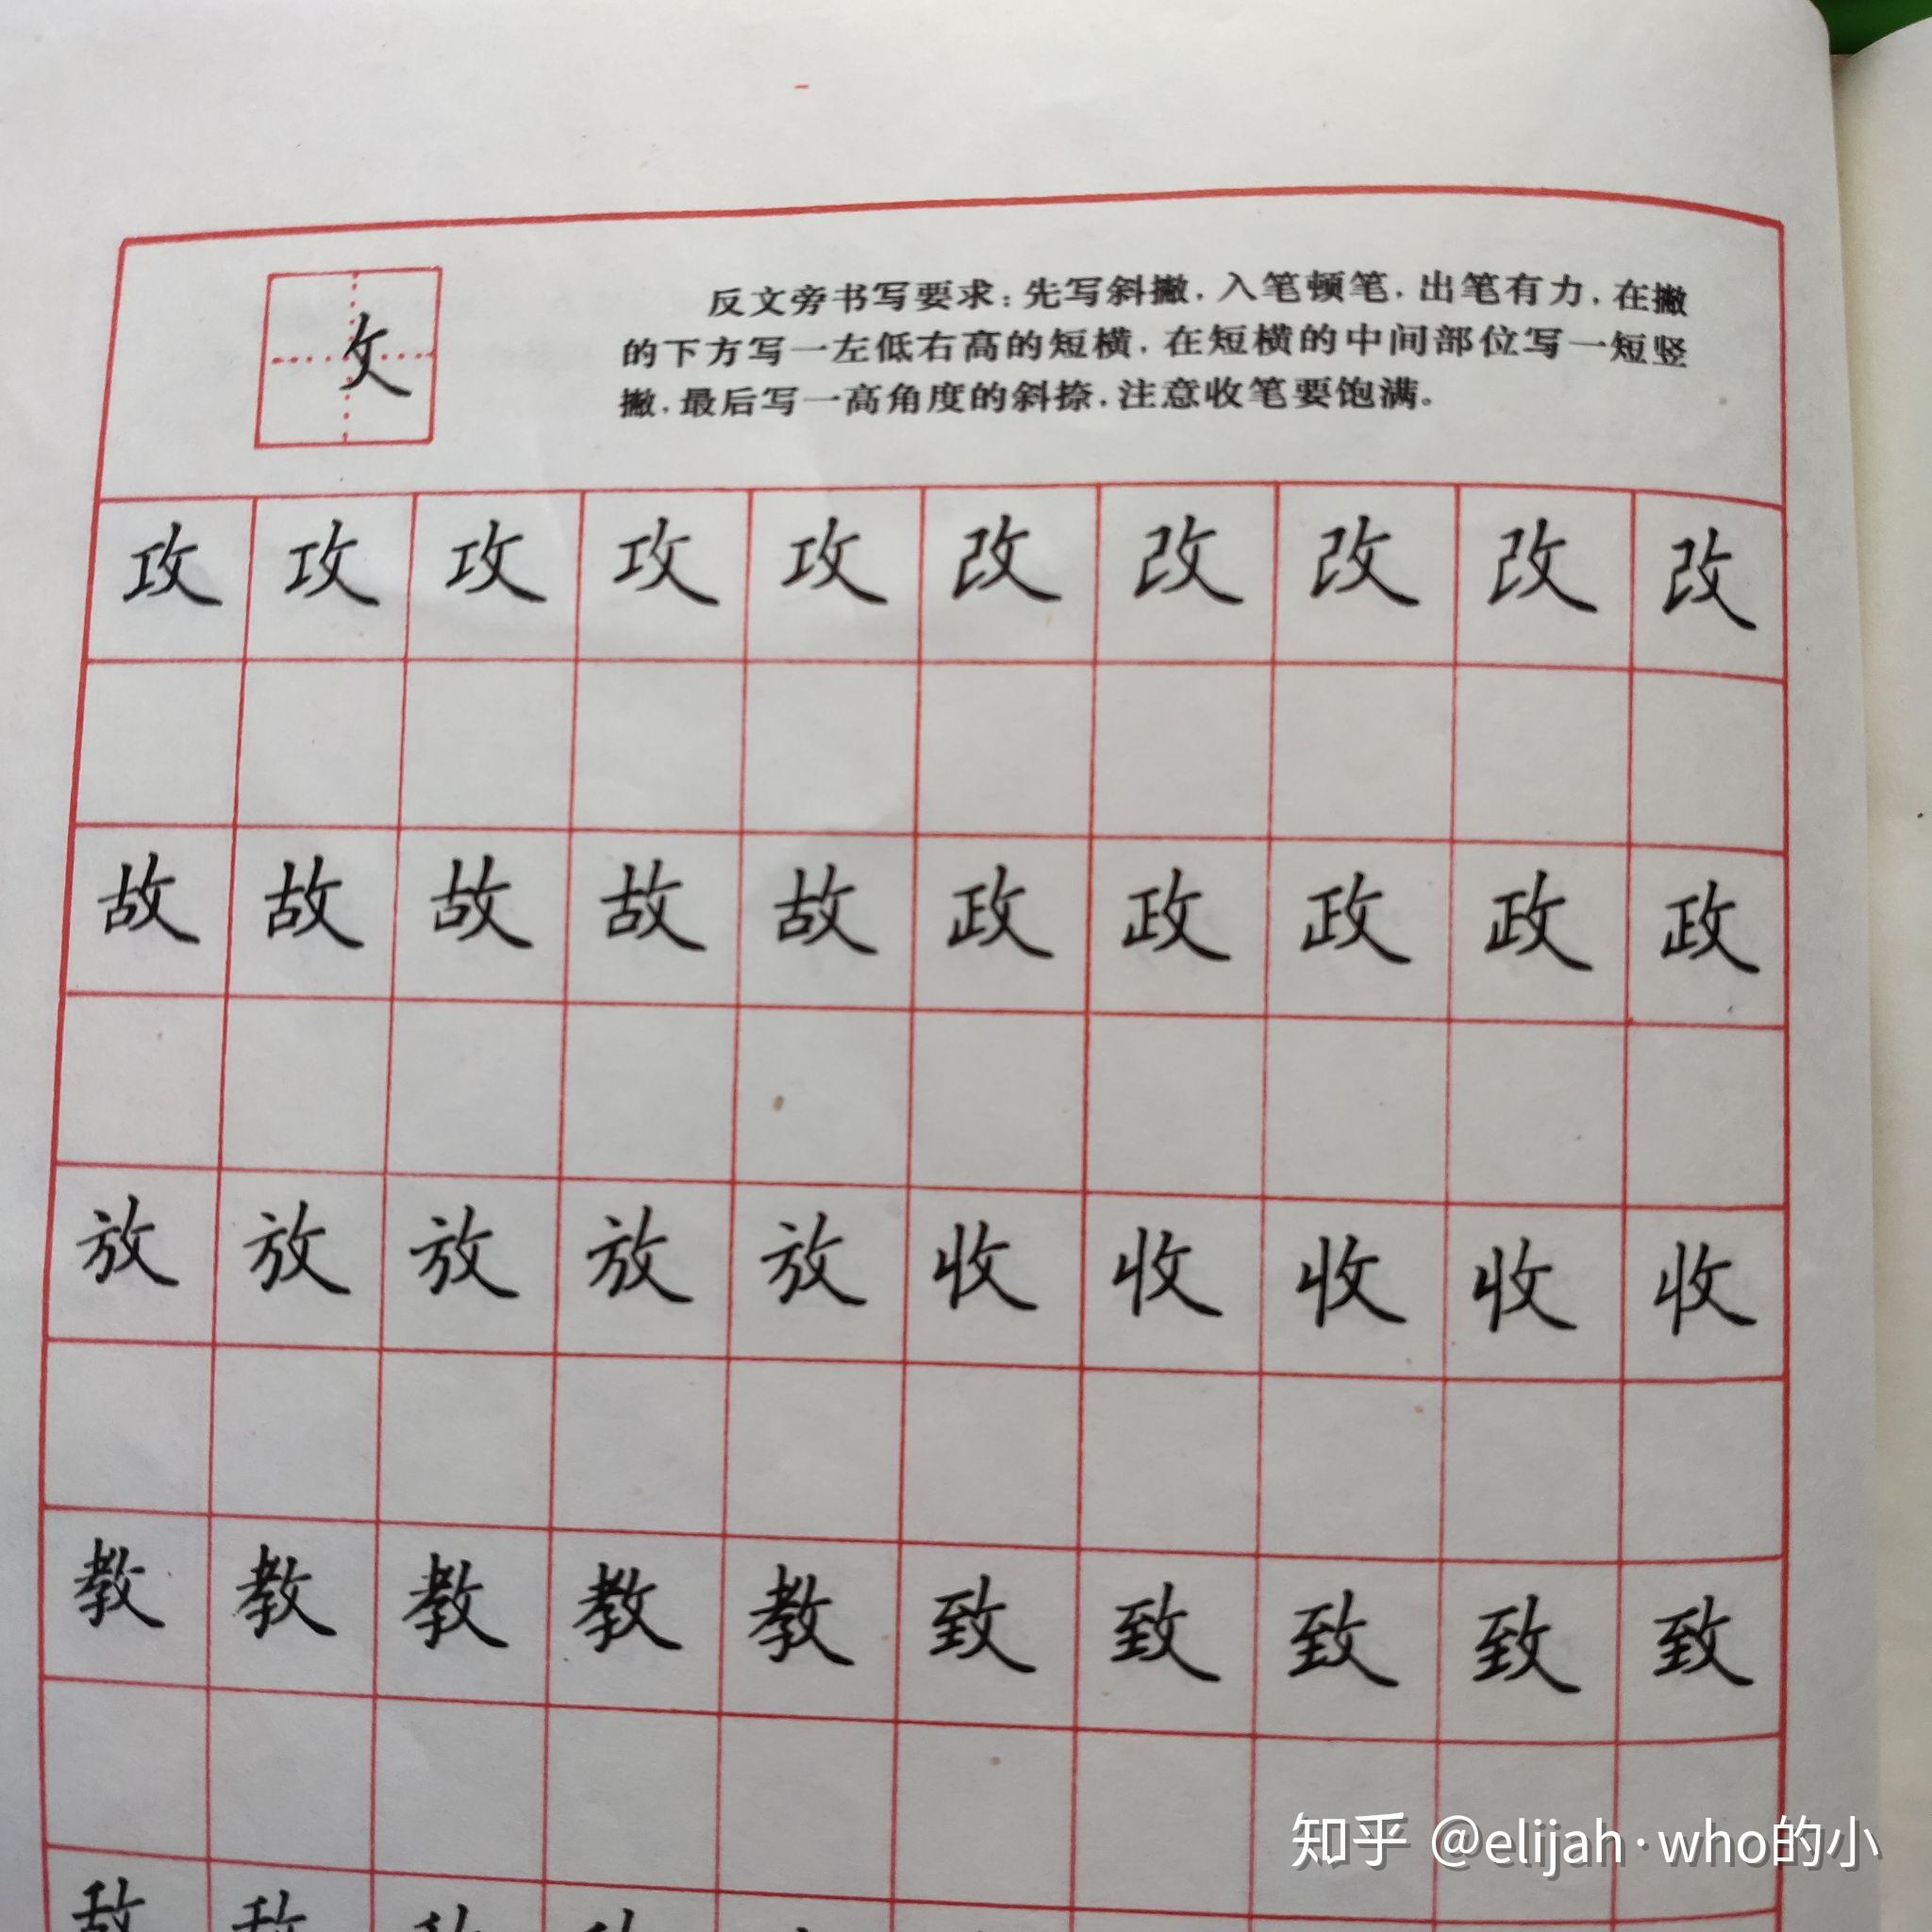 攵
反文旁书写要求：先写斜撇，入笔顿笔，出笔有力，在撇
的下方写一左低右高的短横，在短横的中间部位写一短竖
撇，最后写一高角度的斜捺，注意收笔要饱满。
攻 攻 攻 攻 攻 改 改 改 改 改
故 故 故 故 故 政 政 政 政 政
放 放 放 放 放 收 收 收 收 收
教 教 教 教 教 致 致 致 致 致
知乎 @elijah·who的小